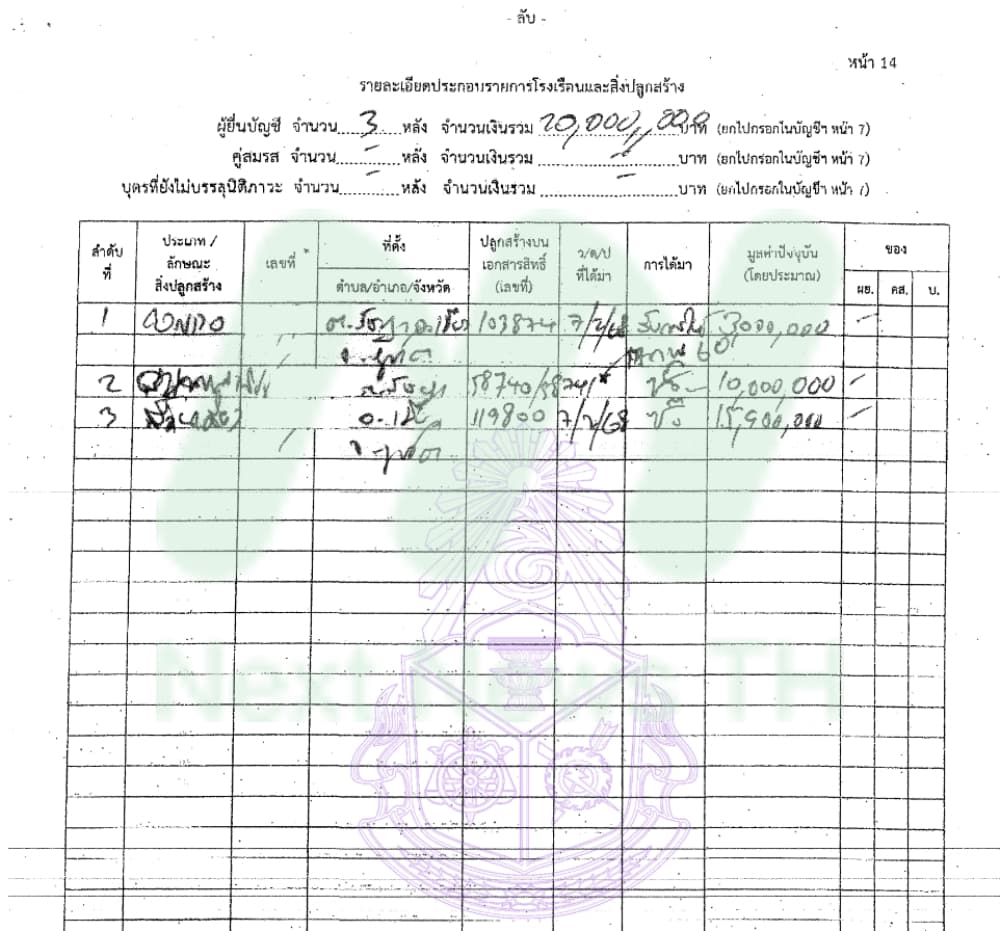 - ลับ -
หน้า 14
รายละเอียดประกอบรายการโรงเรือนและสิ่งปลูกสร้าง
ผู้ยื่นบัญชี จำนวน 3 หลัง จำนวนเงินรวม 20,000,000 บาท (ยกไปกรอกในบัญชีฯ หน้า 7)
คู่สมรส จำนวน - หลัง จำนวนเงินรวม - บาท (ยกไปกรอกในบัญชีฯ หน้า 7)
บุตรที่ยังไม่บรรลุนิติภาวะ จำนวน - หลัง จำนวนเงินรวม - บาท (ยกไปกรอกในบัญชีฯ หน้า 7)
ลำดับที่ ประเภท / ลักษณะสิ่งปลูกสร้าง เลขที่ * ที่ตั้ง ตำบล/อำเภอ/จังหวัด ปลูกสร้างบนเอกสารสิทธิ์ (เลขที่) ว/ด/ป ที่ได้มา การได้มา มูลค่าปัจจุบัน (โดยประมาณ) ของ ผย. คส. บ.
1 103874 7/2/68 3,000,000
2 58740/5874 10,000,000
3 119800 7/2/68 ซื้อ 15,900,000
Next News TH